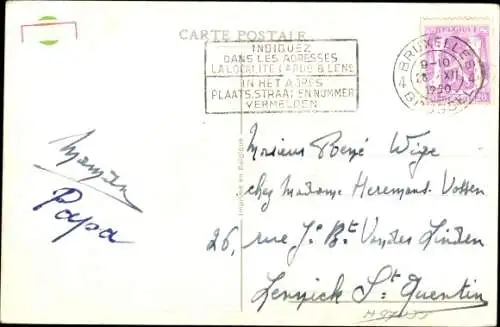 CARTE POSTALE
INDIQUEZ
DANS LES ADRESSES
LA LOCALITE LA RUE & LE No
IN HET ADRES
PLAATS, STRAAT EN NUMMER
VERMELDEN
BRUXELLES
9-10
XII
1950
BRUSSEL
BELGIQUE
Imprimé en Belgique
Maman
Papa
Monsieur René Wige
chez Madame Heremans-Vossen
26, rue Jn. Bt. Vander Linden
Lennick St. Quentin